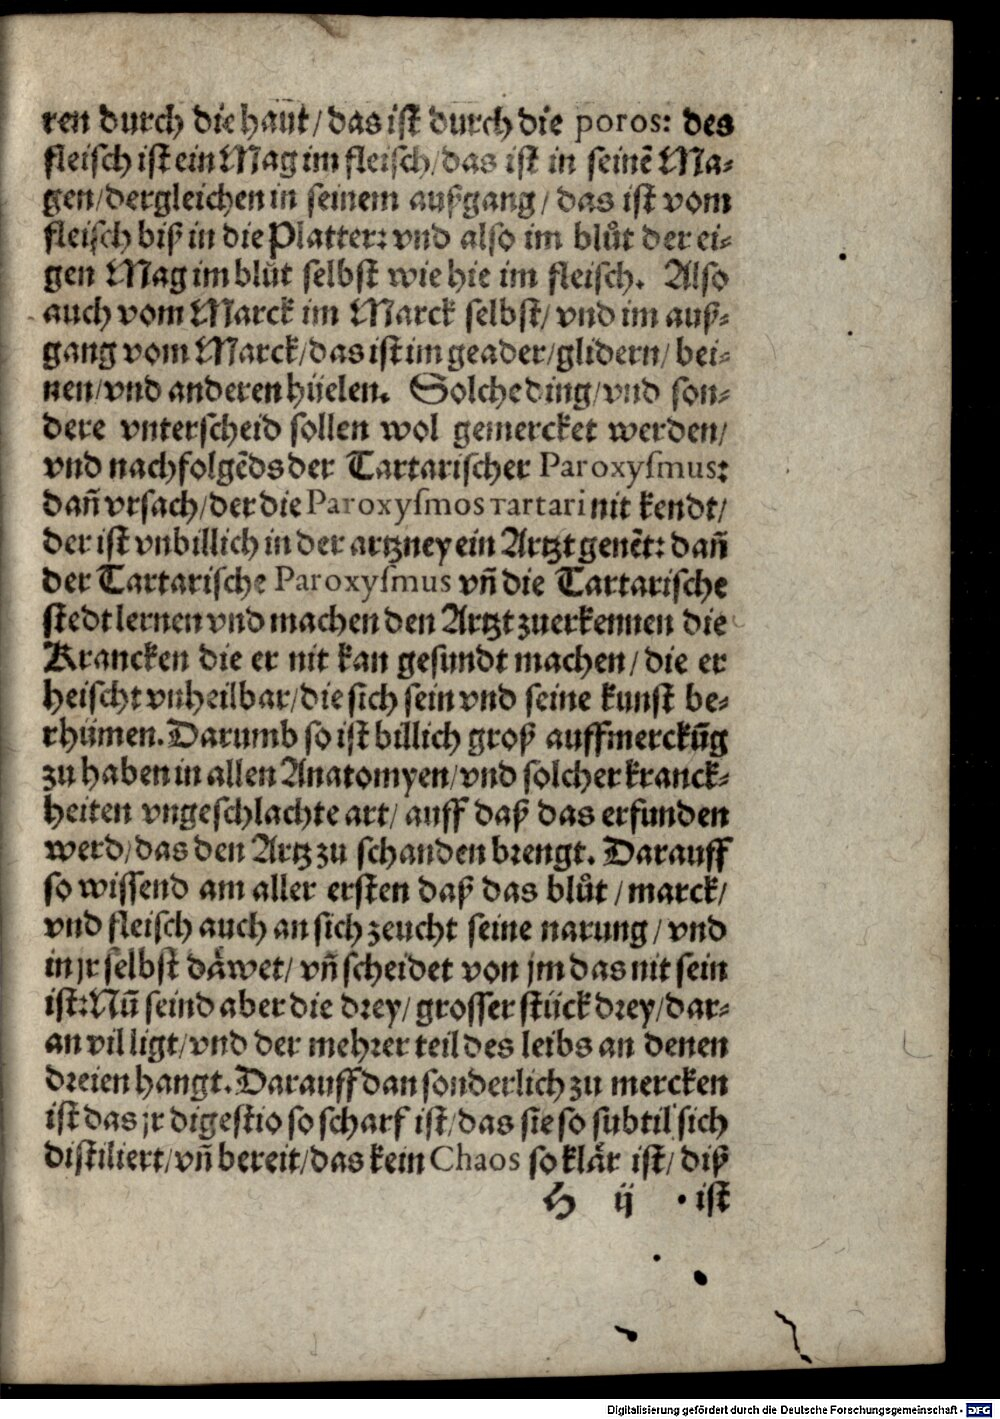 ren durch die haut/das ist durch die poros: des
fleisch ist ein Mag im fleisch/das ist in seinē Ma⸗
gen/dergleichen in seinem außgang/ das ist vom
fleisch biß in die Platter: vnd also im blůt der ei⸗
gen Mag im blůt selbst wie hie im fleisch. Also
auch vom Marck im Marck selbst/ vnd im auß⸗
gang vom Marck/das ist im geader/glidern/ bei⸗
nen/vnd anderen hüelen. Solche ding/vnd son⸗
dere vnterscheid sollen wol gemercket werden/
vnd nachfolgēds der Tartarischer Paroxyſmus:
dañ vrsach/der die Paroxyſmos Tartari nit kendt/
der ist vnbillich in der artzney ein Artzt genēt: dañ
der Tartarische Paroxyſmus vñ die Tartarische
stedt lernen vnd machen den Artzt zuerkennen die
Krancken die er nit kan gesundt machen/ die er
heischt vnheilbar/die sich sein vnd seine kunst be⸗
rhümen. Darumb so ist billich groß auffmerckūg
zu haben in allen Anatomyen/vnd solcher kranck⸗
heiten vngeschlachte art/ auff daß das erfunden
werd/das den Artz zu schanden brengt. Darauff
so wissend am aller ersten daß das blůt / marck/
vnd fleisch auch an sich zeucht seine narung/ vnd
in jr selbst dåwet/ vñ scheidet von jm das nit sein
ist: Nū seind aber die drey/ grosser stück drey/dar⸗
an vil ligt/vnd der mehrer teil des leibs an denen
dreien hangt. Darauff dan sonderlich zu mercken
ist das jr digestio so scharf ist/das sie so subtil sich
distiliert/vñ bereit/das kein Chaos so klår ist/ diß
H ij ist
Digitalisierung gefördert durch die Deutsche Forschungsgemeinschaft - DFG